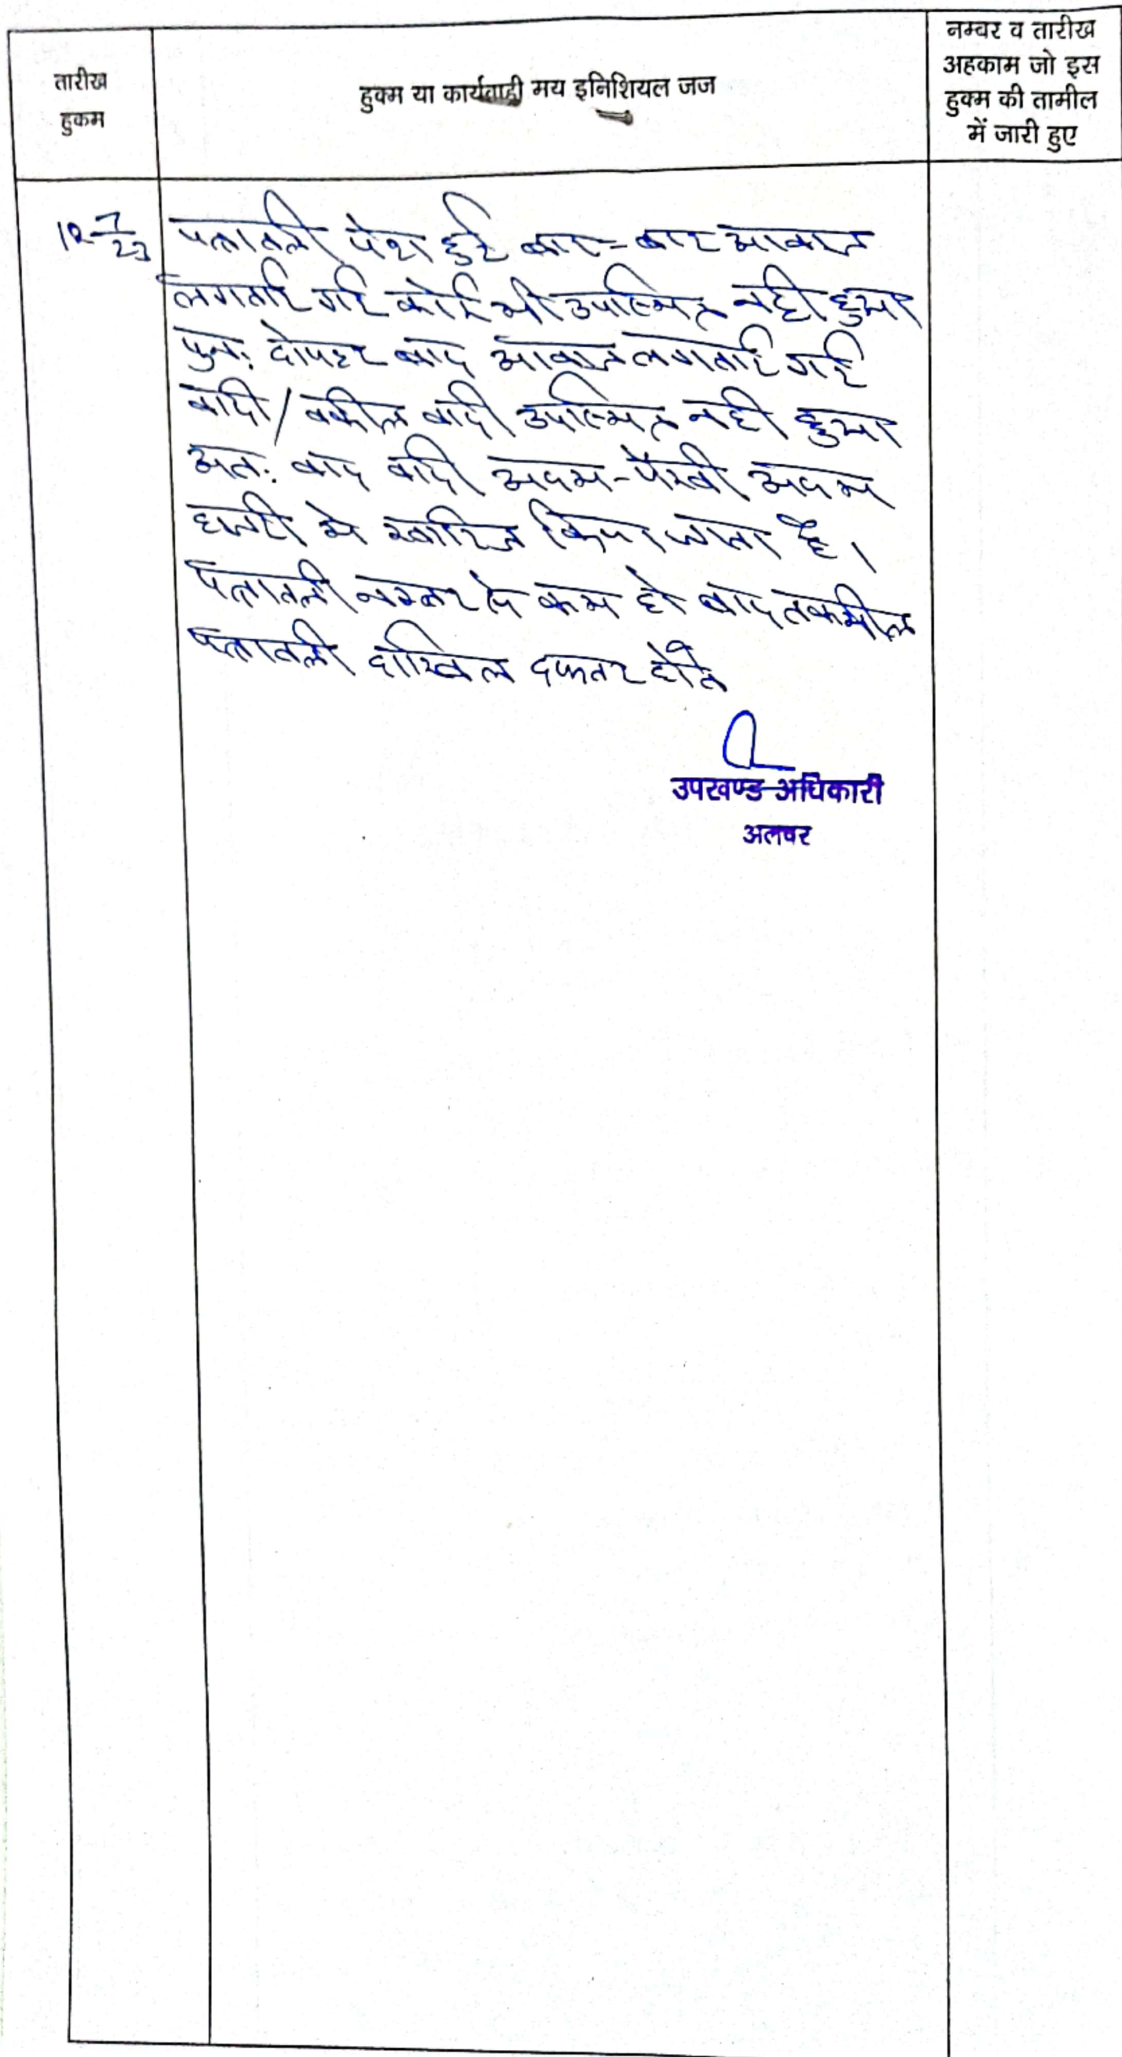 तारीख
हुकम
हुक्म या कार्यवाही मय इनिशियल जज
नम्बर व तारीख
अहकाम जो इस
हुक्म की तामील
में जारी हुए
12-7/23
पत्रावली पेश हुई बार-बार आवाज
लगवाई गई कोई भी उपस्थित नही हुआ
पुन: दोपहर बाद आवाज लगवाई गई
वादी/वकील वादी उपस्थित नही हुआ
अत: वाद वादी अदम-पैरवी अदम
हाजरी मे खारिज किया जाता है।
पत्रावली नम्बर से कम हो बाद तकमील
पत्रावली दाखिल दफ्तर होवे
उपखण्ड अधिकारी
अलवर